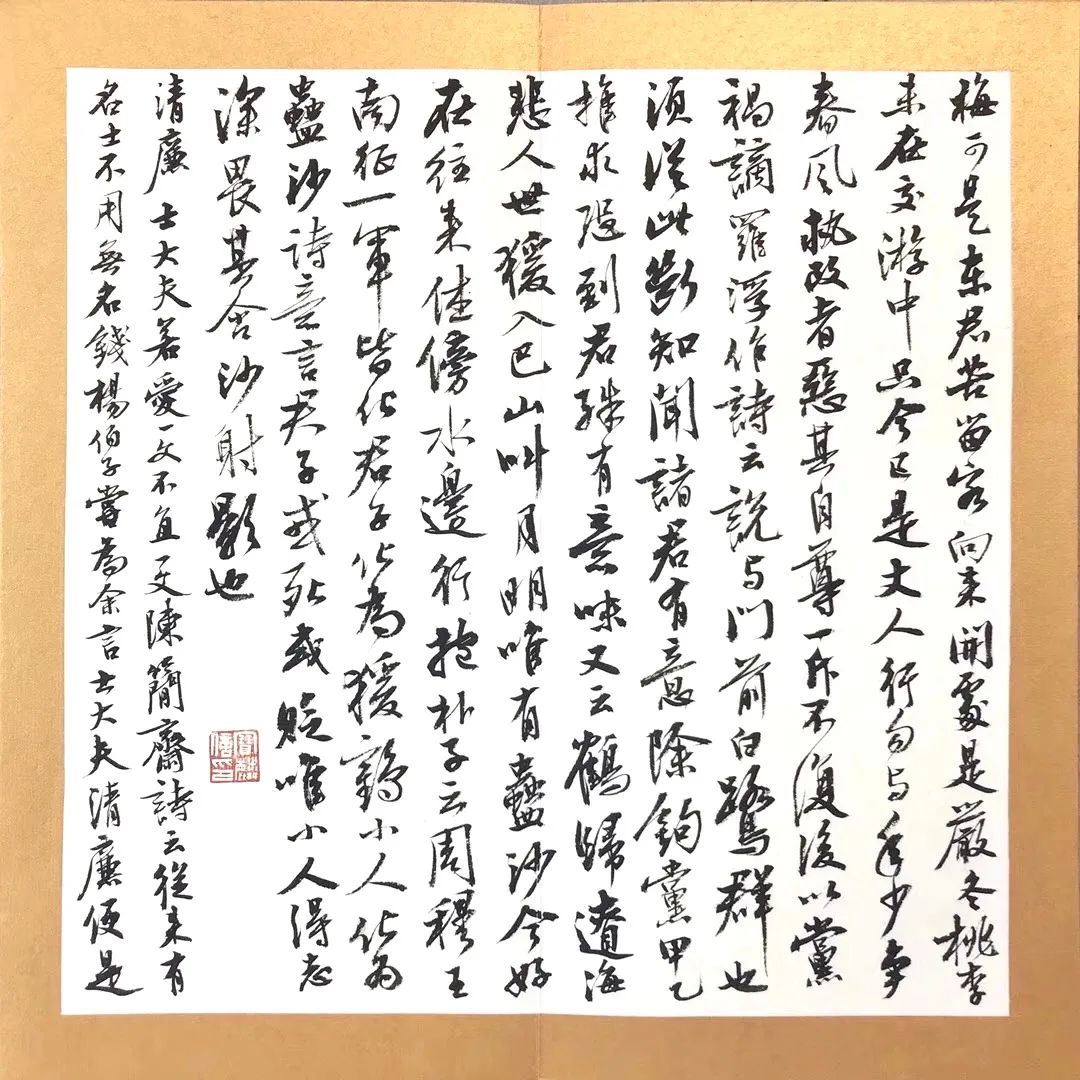 梅可是东君苦留客向来開處是嚴冬桃李
未在交游中只今已是丈人行勻与年少争
春风執政者惡其自尊一斥不復後以黨
禍謫羅浮作詩云説与門前白鷺群也
須從此斷知聞諸君有意除鉤黨甲乙
推求恐到君殊有意味又云鶴歸遼海
悲人世猨入巴山叫月明唯有蟲沙今好
在往来佳傍水邊行抱朴子云周穆王
南征一軍皆化君子化為猨鶴小人化為
蟲沙詩意言君子或死或貶唯小人得志
深畏其含沙射影也
清廉 士大夫若愛一文不直一文陳簡齋詩云從来有
名士不用無名錢楊伯子嘗為余言士大夫清廉便是